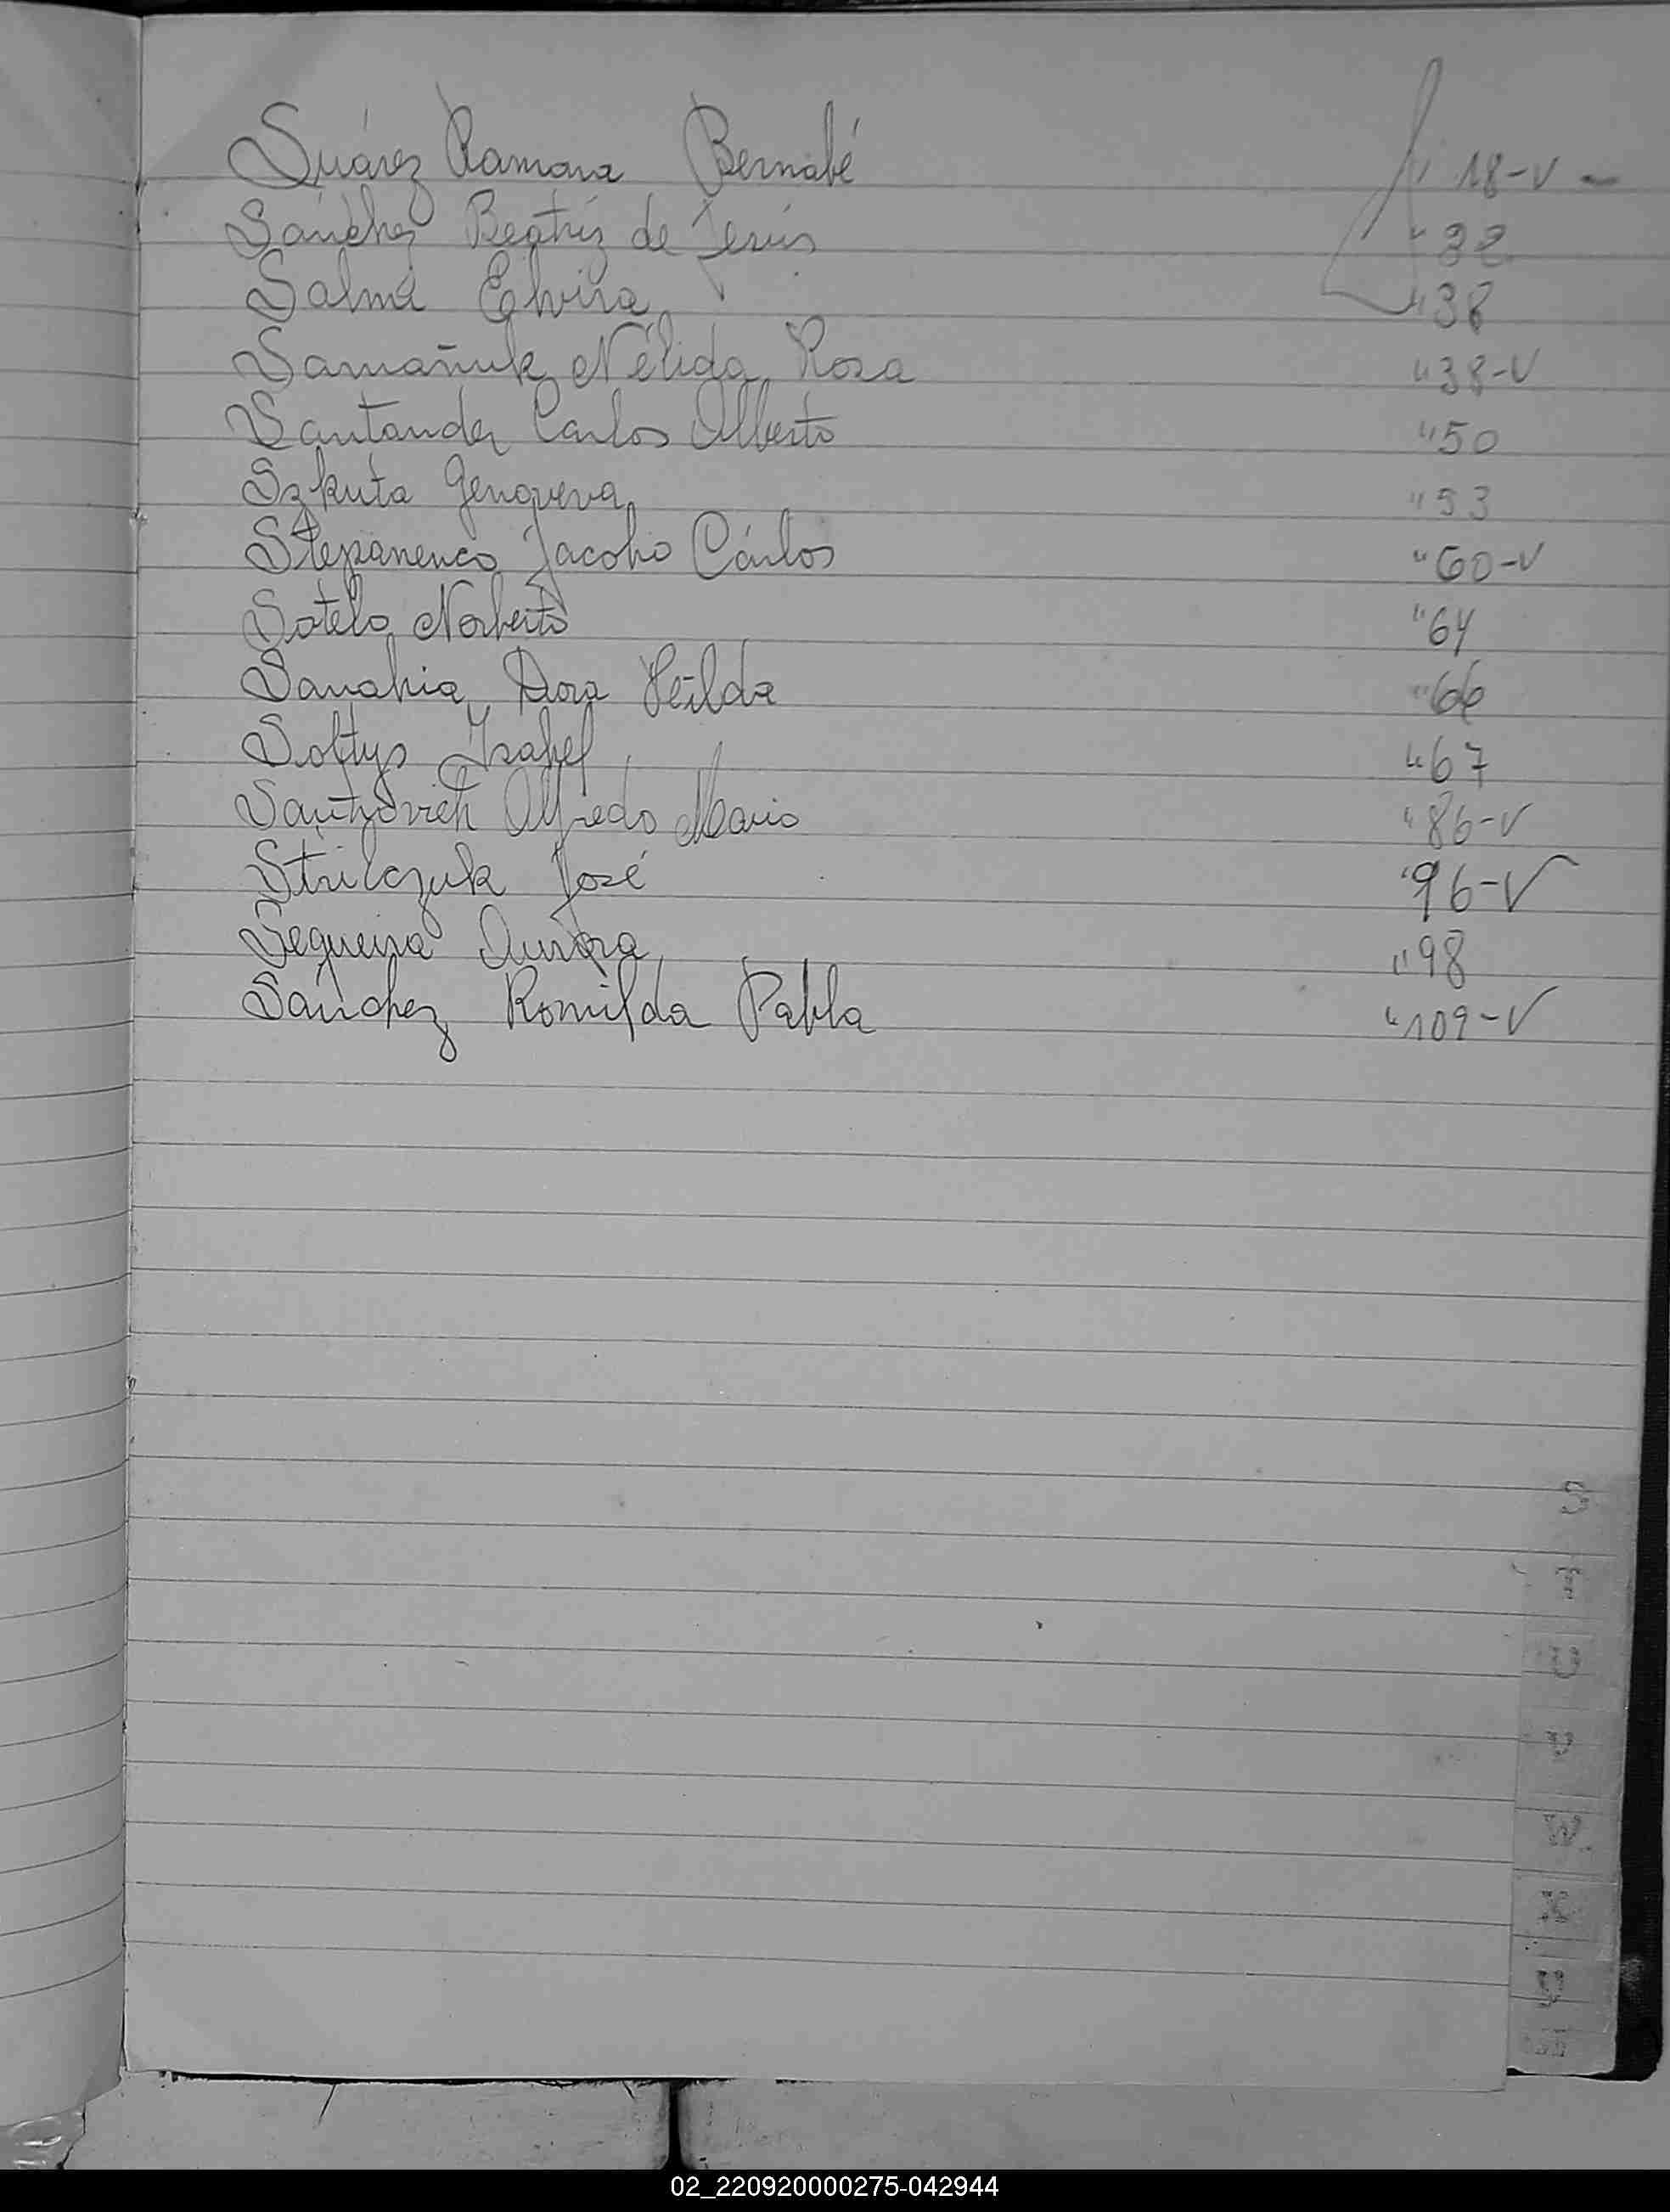 Suárez Ramona Bernabé " 18-V -
Sánchez Beatríz de Jesús " 32
Salma Elvira " 38
Samañuk Nélida Rosa " 38-V
Santander Carlos Alberto " 50
Szkuta Genoveva " 53
Stepanenco Jacobo Cárlos " 60-V
Sotelo Norberto " 64
Sanabia Dora Hilda " 66
Soltys Isabel " 67
Alfredo Mario " 86-V
Strilczuk José " 96-V
Sequeira Aurora " 98
Sánchez Romilda Pabla " 109-V
S
T
U
V
W
X
Y
02_220920000275-042944